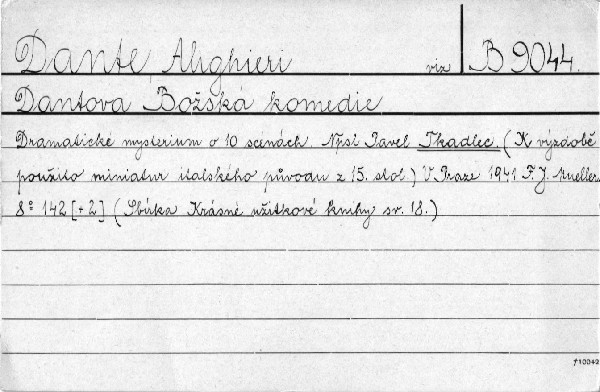 Dante Alighieri viz B 9044.
Dantova Božská komedie
Dramatické mysterium o 10 scénách. Npsl Pavel Tkadlec (K výzdobě
použito miniatur italského původu z 15. stol.) V Praze 1941 F. J. Mueller.
8° 142 [+2] (Sbírka Krásné užitkové knihy sv. 18.)
†10042